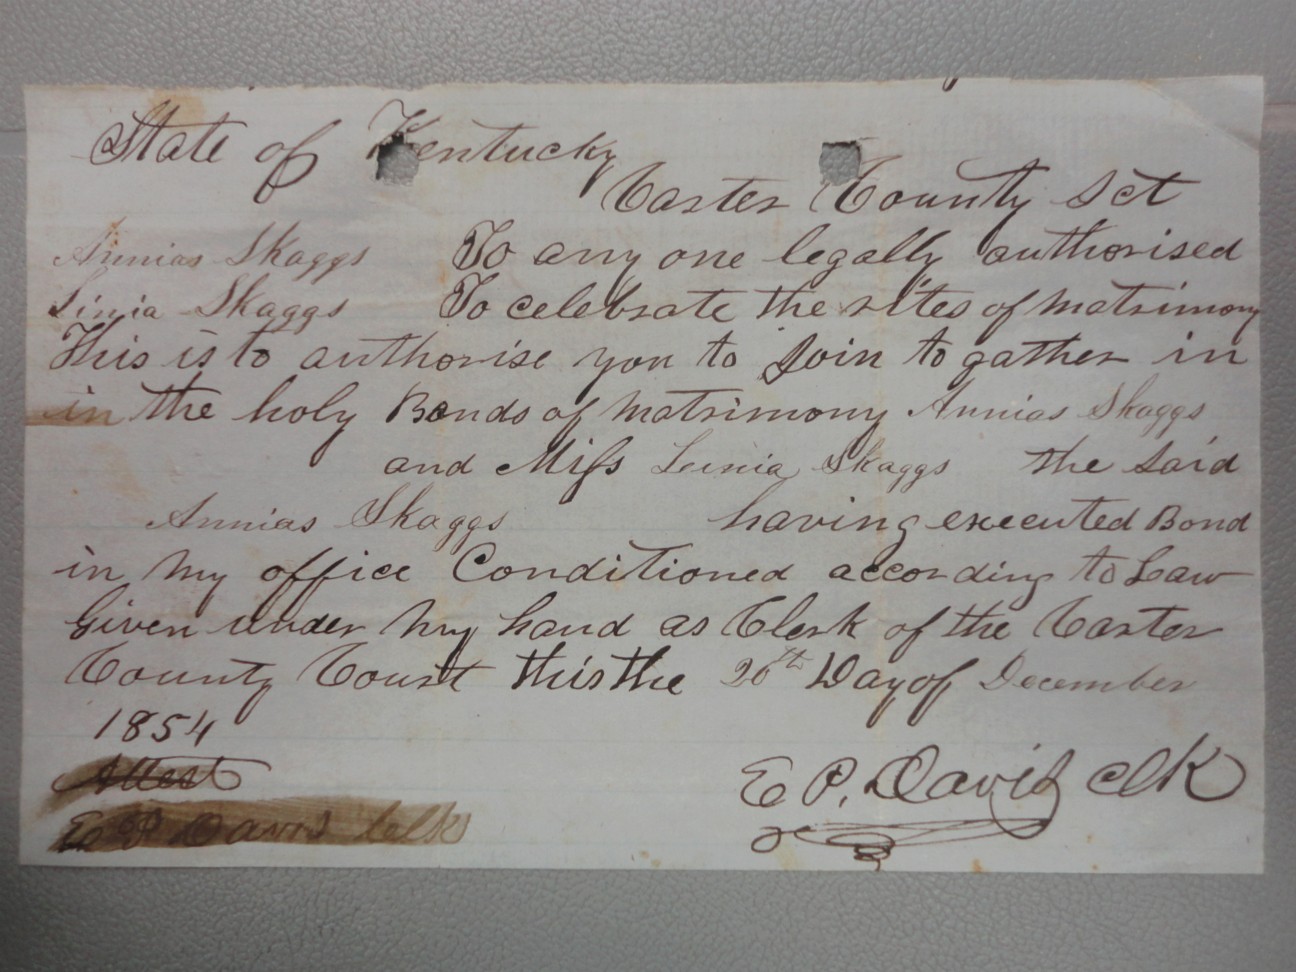 State of Kentucky
Carter County Sct
Annias Skaggs To any one legally authorised
Linia Skaggs To celebrate the rites of matrimony
This is to authorise you to Join to gather in
in the holy Bonds of Matrimony Annias Skaggs
and Miss Linia Skaggs the said
Annias Skaggs having executed Bond
in my office Conditioned according to Law
Given under my hand as Clerk of the Carter
County Court this the 20th Day of December
1854
Attest
E P. Davis clk
E P Davis